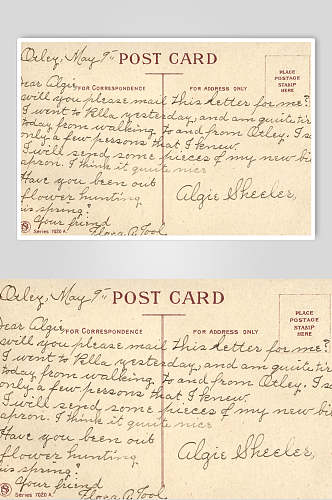 Oxley, May 9"
POST CARD
PLACE
POSTAGE
STAMP
HERE
FOR CORRESPONDENCE
FOR ADDRESS ONLY
Dear Algie
will you please mail this letter for me?
I went to Rlla yesterday, and am quite tir
today from walking to and from Oxley. I s
only a few persons that I knew.
I will send some pieces of my new bi
apron. I think it quite nice
Have you been out
flower hunting
is spring?
Your friend
Flora A. Tool
Algie Sheeler,
Series 7020 A.
Oxley, May 9"
POST CARD
PLACE
POSTAGE
STAMP
HERE
FOR CORRESPONDENCE
FOR ADDRESS ONLY
ear Algie
will you please mail this letter for me?
I went to Rlla yesterday, and am quite tir
today from walking to and from Oxley. I s
only a few persons that I knew.
I will send some pieces of my new bi
apron. I think it quite nice
Have you been out
flower hunting
is spring?
Your friend
Flora A. Tool
Algie Sheeler,
Series 7020 A.